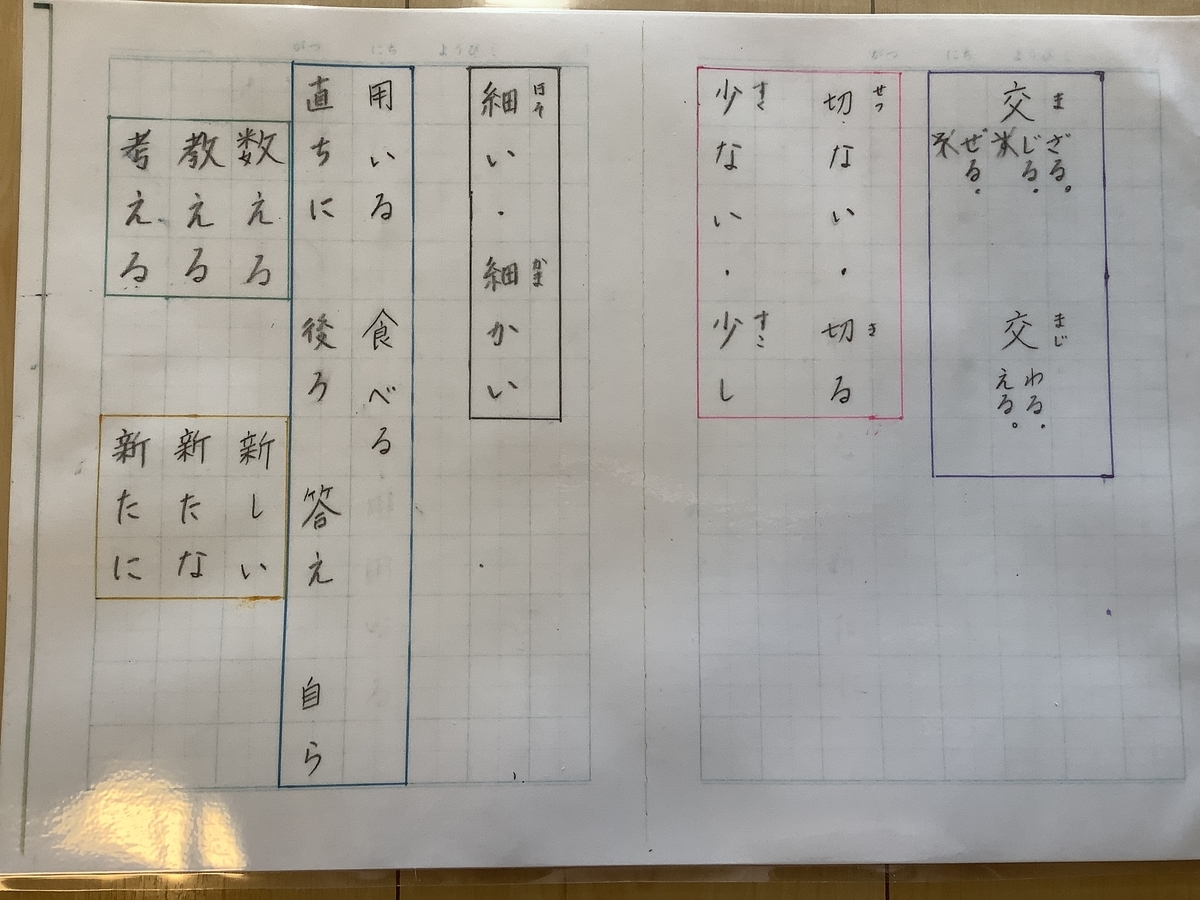 がつ にち ようび
交ま ざる。
じる。
ぜる。
交まじ わる。
える。
切せつない・切きる
少すくない・少すこし
がつ にち ようび
細ほそい・細かまかい
用いる 食べる
直ちに 後ろ 答え 自ら
数える
教える
考える
新しい
新たな
新たに